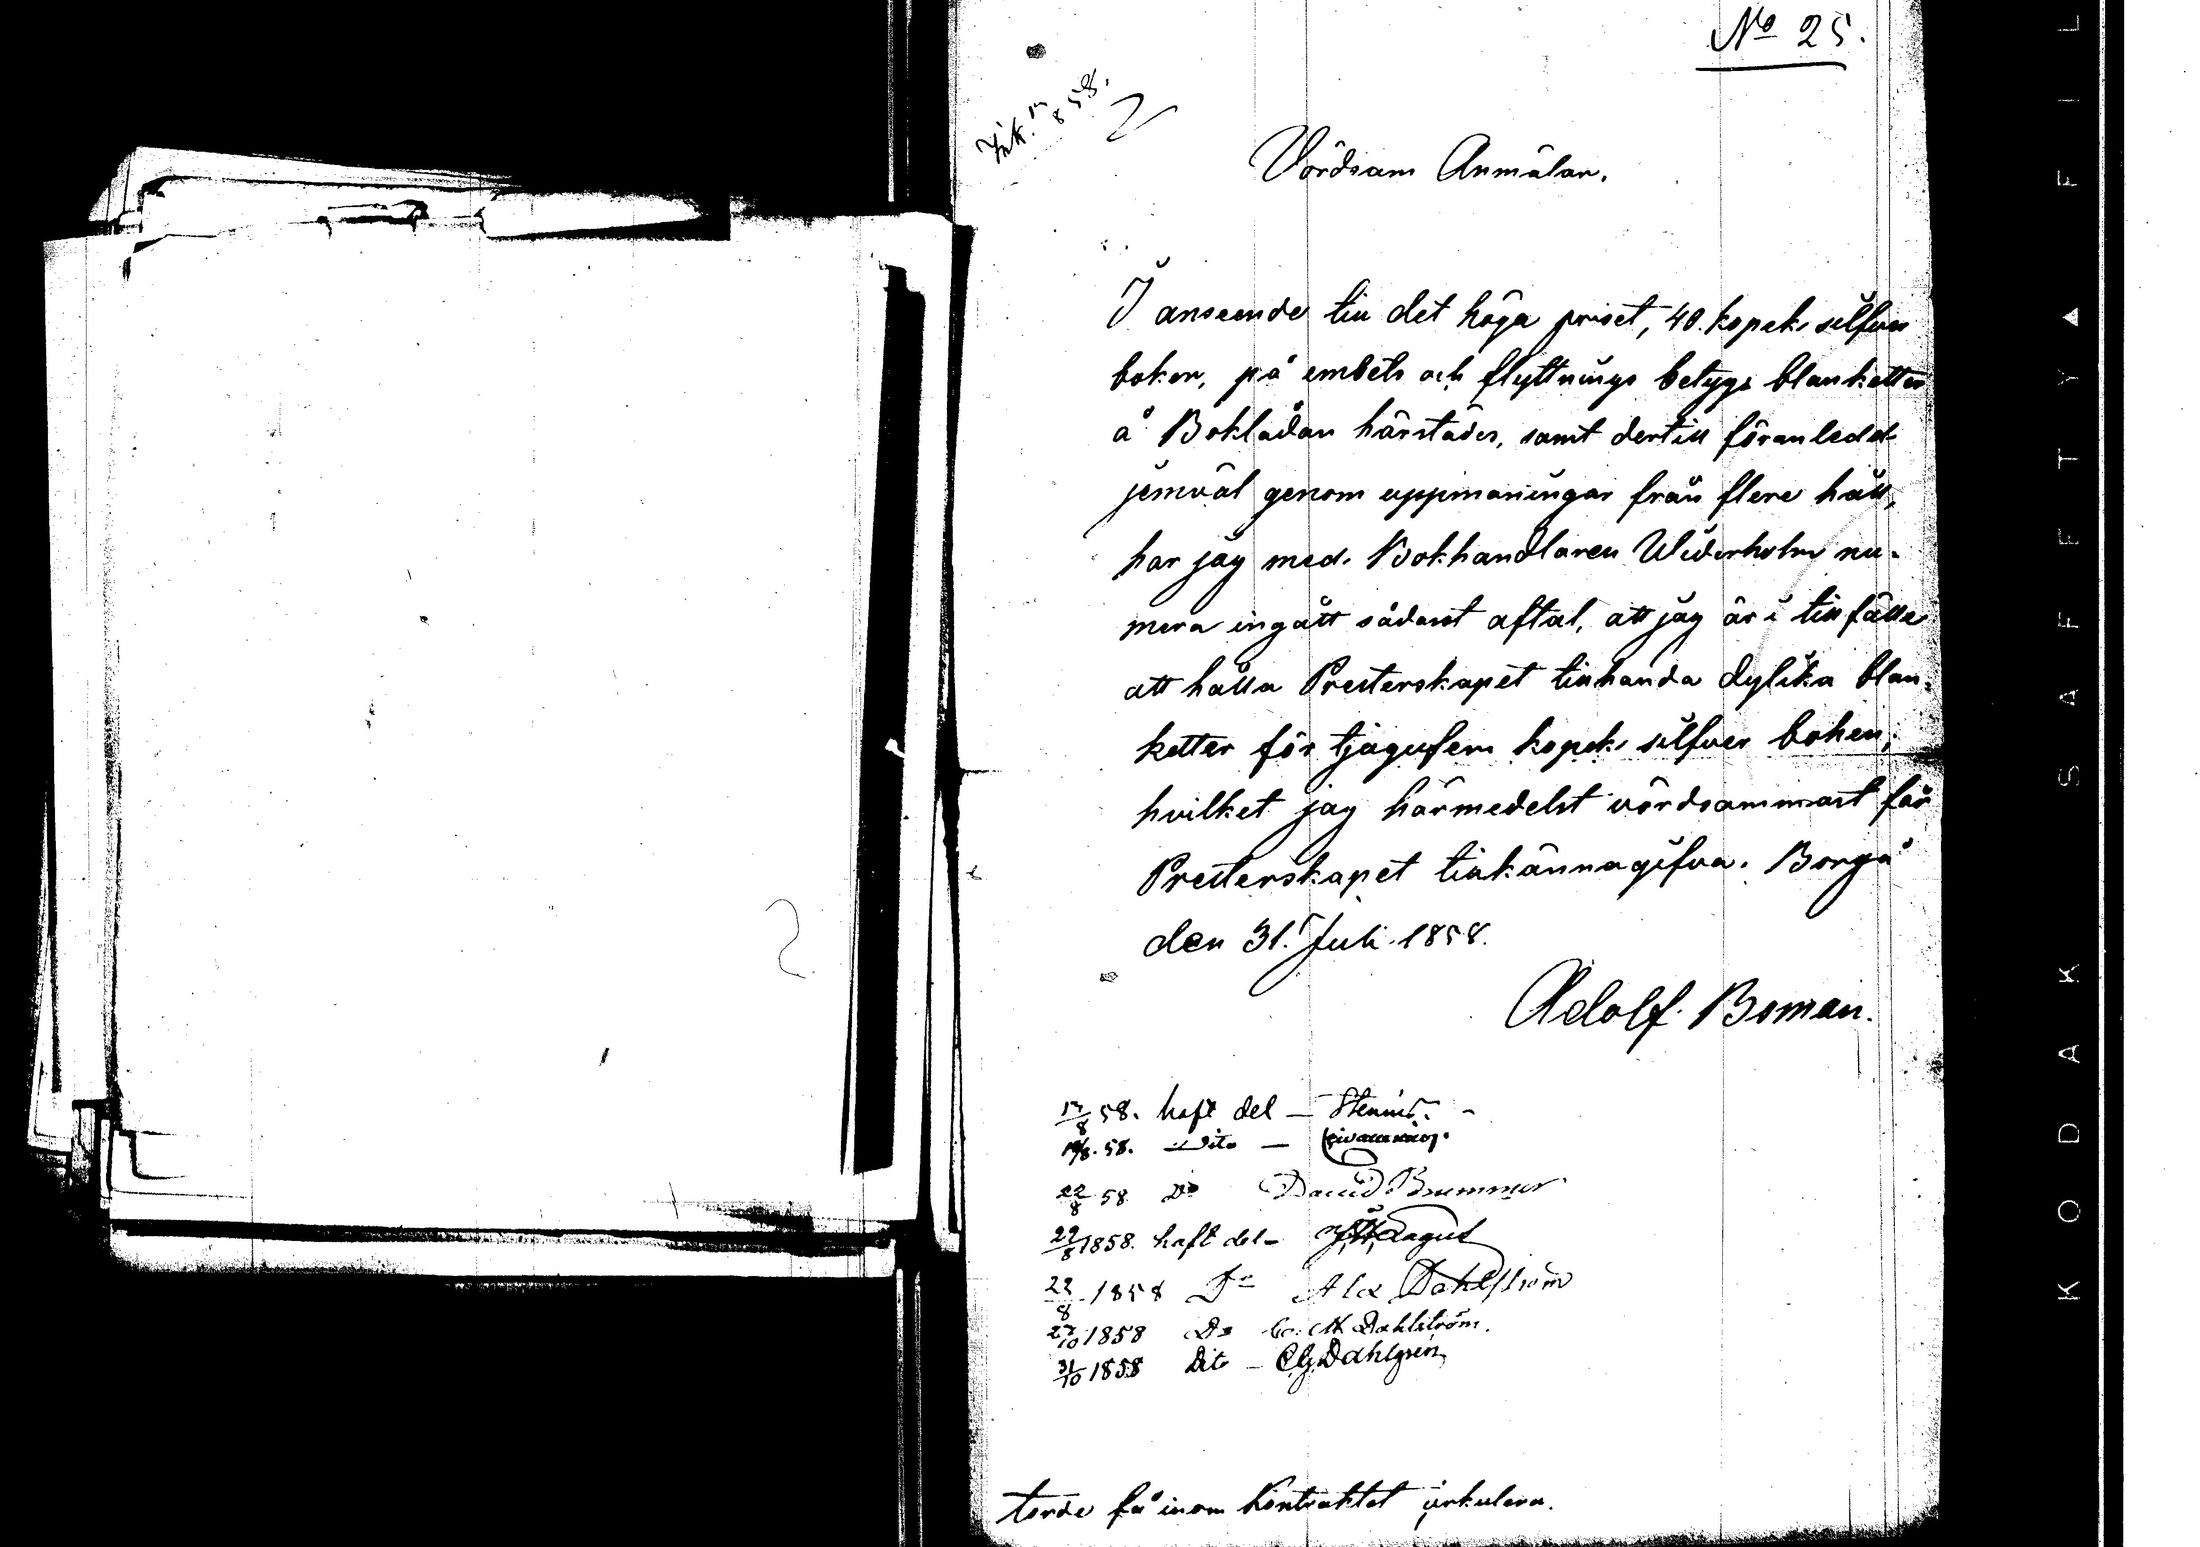 No 25.
Ink. 17/8 58.
Vördsam Anmälan.
I anseende till det höga priset, 40 kopek silfver
boken, på embets och flyttnings betygs blanketter
å Boklådan härstädes, samt dertill föranledd
jemväl genom uppmaningar från flere håll,
har jag med Bokhandlaren Widerholm nu-
mera ingått sådant aftal, att jag är i tillfälle
att hålla Presterskapet tillhanda dylika blan-
ketter för tjugufem kopek silfver boken,
hvilket jag härmedelst vördsammast får
Presterskapet tillkännagifva. Borgå
den 31. Juli 1858.
Adolf Boman.
17/8 58. haft del — Stenius. -
19/8. 58. Dito —
22/8 58 Do David Brummer
22/8 1858. haft del —
22/8 1858 Do Alex Dahlström
27/10 1858 Do C. M. Dahlström.
31/10 1858 Dito — C.G. Dahlgren
torde få inom Kontraktet cirkulera.
KODAK SAFETY ▲ FIL